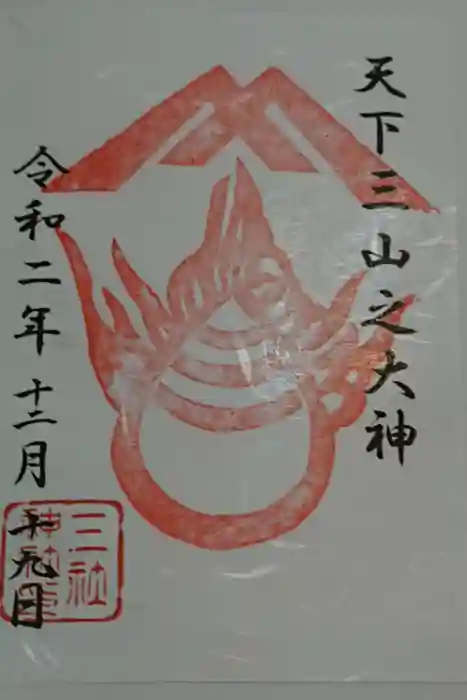 天下三山之大神
令和二年十二月十九日
三社